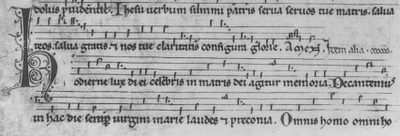 dolus prudentie. Ihesu verbum summi patris serua seruos tue matris. salua
reos. salua gratis. et nos tue claritatis configura glorie. Amen. Item alia.
Hodierne lux diei celebris in matris dei agitur memoria. Decantemus
in hac die semper uirgini marie laudes et preconia. Omnis homo omni ho